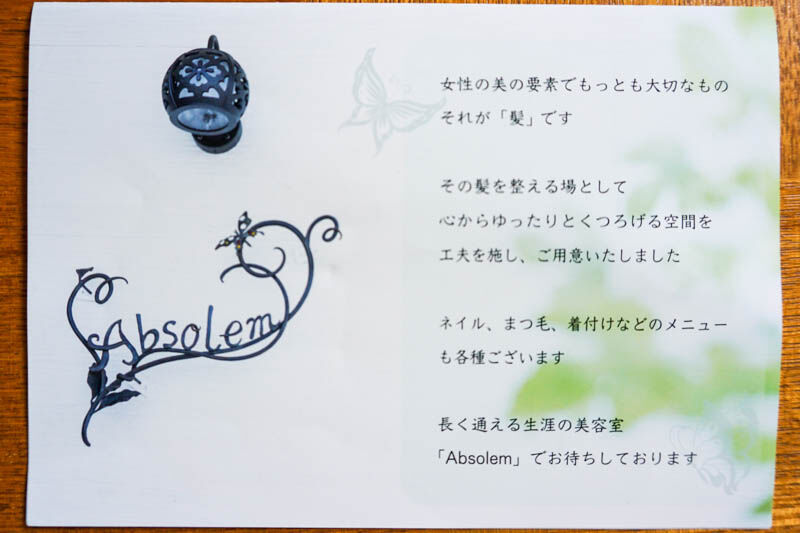 Absolem
女性の美の要素でもっとも大切なもの
それが「髪」です
その髪を整える場として
心からゆったりとくつろげる空間を
工夫を施し、ご用意いたしました
ネイル、まつ毛、着付けなどのメニュー
も各種ございます
長く通える生涯の美容室
「Absolem」でお待ちしております